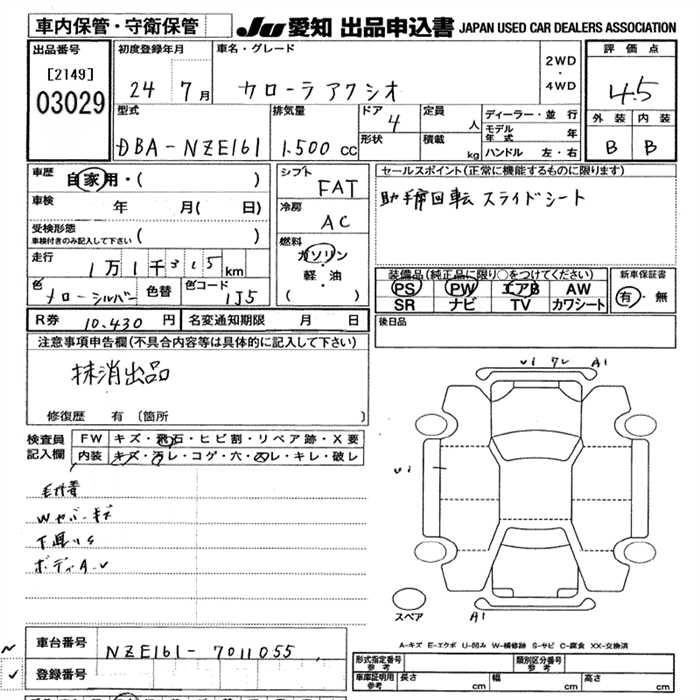 車内保管・守衛保管
JU 愛知 出品申込書 JAPAN USED CAR DEALERS ASSOCIATION
出品番号
[2149]
03029
初度登録年月
24 7月
車名・グレード
カローラ アクシオ
2WD
・
4WD
評価点
4.5
外装 内装
B B
型式
DBA-NZE161
排気量
1.500 cc
ドア 4
形状
定員 人
積載 kg
ディーラー・並行
モデル年式 年
ハンドル 左・右
車歴
自家用・( )
車検 年 月( 日)
受検形態
車検付きのみ記入して下さい ( )
走行
1万1千315km
色
色替
色コード
1J5
シフト
FAT
冷房
AC
燃料
ガソリン
・
軽・油
( )
セールスポイント(正常に機能するものに限ります)
助手席回転 スライドシート
装備品(純正品に限り○をつけてください)
PS PW エアB AW
SR ナビ TV カワシート
新車保証書
有・無
後日品
R券 10.430 円
名変通知期限 月 日
注意事項申告欄(不具合内容等は具体的に記入して下さい)
抹消出品
修復歴 有 〔箇所 〕
検査員
記入欄
FW キズ・飛石・ヒビ割・リペア跡・X要
内装 キズ・汚レ・コゲ・穴・スレ・キレ・破レ
U1 ワレ A1
U1
A1
スペア
A-キズ E-エクボ U-凹み W-補修跡 S-サビ C-腐食 XX-交換済
車台番号
NZE161-7011055
登録番号
形式指定番号
参考
類別区分番号
参考
車庫証明用
参考
長さ cm
幅 cm
高さ cm